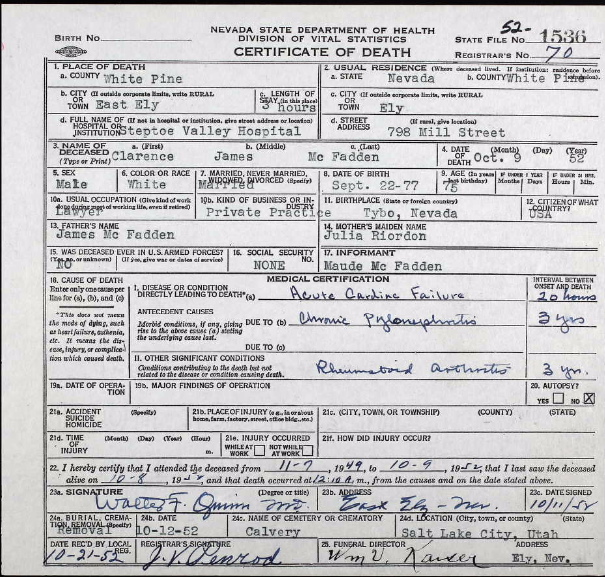 NEVADA STATE DEPARTMENT OF HEALTH
DIVISION OF VITAL STATISTICS
CERTIFICATE OF DEATH
BIRTH NO.
52-
STATE FILE NO. 1536
REGISTRAR'S NO. 70
1. PLACE OF DEATH
a. COUNTY White Pine
2. USUAL RESIDENCE (Where deceased lived. If institution: residence before admission).
a. STATE Nevada b. COUNTY White Pine
b. CITY (If outside corporate limits, write RURAL
OR TOWN East Ely
c. LENGTH OF STAY (in this place)
3 hours
c. CITY (If outside corporate limits, write RURAL
OR TOWN Ely
d. FULL NAME OF (If not in hospital or institution, give street address or location)
HOSPITAL OR INSTITUTION Steptoe Valley Hospital
d. STREET ADDRESS (If rural, give location)
798 Mill Street
3. NAME OF DECEASED (Type or Print)
a. (First) b. (Middle) c. (Last)
Clarence James Mc Fadden
4. DATE OF DEATH (Month) (Day) (Year)
Oct. 9 52
5. SEX
Male
6. COLOR OR RACE
White
7. MARRIED, NEVER MARRIED, WIDOWED, DIVORCED (Specify)
Married
8. DATE OF BIRTH
Sept. 22-77
9. AGE (In years last birthday)
75
IF UNDER 1 YEAR
Months Days
IF UNDER 24 HRS.
Hours Min.
10a. USUAL OCCUPATION (Give kind of work done during most of working life, even if retired)
Lawyer
10b. KIND OF BUSINESS OR INDUSTRY
Private Practice
11. BIRTHPLACE (State or foreign country)
Tybo, Nevada
12. CITIZEN OF WHAT COUNTRY?
USA
13. FATHER'S NAME
James Mc Fadden
14. MOTHER'S MAIDEN NAME
Julia Riordon
15. WAS DECEASED EVER IN U.S. ARMED FORCES?
(Yes, no, or unknown) (If yes, give war or dates of service)
NO
16. SOCIAL SECURITY NO.
NONE
17. INFORMANT
Maude Mc Fadden
MEDICAL CERTIFICATION
INTERVAL BETWEEN ONSET AND DEATH
18. CAUSE OF DEATH
Enter only one cause per line for (a), (b), and (c)
I. DISEASE OR CONDITION DIRECTLY LEADING TO DEATH* (a) Acute Cardiac Failure 20 hours
*This does not mean the mode of dying, such as heart failure, asthenia, etc. It means the disease, injury, or complication which caused death.
ANTECEDENT CAUSES
Morbid conditions, if any, giving rise to the above cause (a) stating the underlying cause last.
DUE TO (b) Chronic Pyelonephritis 3 yrs
DUE TO (c)
II. OTHER SIGNIFICANT CONDITIONS
Conditions contributing to the death but not related to the disease or condition causing death.
Rheumatoid Arthritis 3 yr.
19a. DATE OF OPERATION
19b. MAJOR FINDINGS OF OPERATION
20. AUTOPSY?
YES NO X
21a. ACCIDENT SUICIDE HOMICIDE (Specify)
21b. PLACE OF INJURY (e.g., in or about home, farm, factory, street, office bldg., etc.)
21c. (CITY, TOWN, OR TOWNSHIP) (COUNTY) (STATE)
21d. TIME OF INJURY (Month) (Day) (Year) (Hour) m.
21e. INJURY OCCURRED
WHILE AT WORK NOT WHILE AT WORK
21f. HOW DID INJURY OCCUR?
22. I hereby certify that I attended the deceased from 11-7, 1949, to 10-9, 1952, that I last saw the deceased
alive on 10-8, 1952, and that death occurred at 12:10 A. m., from the causes and on the date stated above.
23a. SIGNATURE (Degree or title)
Walter F. Quinn MD.
23b. ADDRESS
East Ely - Nev.
23c. DATE SIGNED
10/11/52
24a. BURIAL, CREMATION, REMOVAL (Specify)
Removal
24b. DATE
10-12-52
24c. NAME OF CEMETERY OR CREMATORY
Calvery
24d. LOCATION (City, town, or county) (State)
Salt Lake City, Utah
DATE REC'D BY LOCAL REG.
10-21-52
REGISTRAR'S SIGNATURE
J. V. Penrod
25. FUNERAL DIRECTOR ADDRESS
Wm V. Ely, Nev.